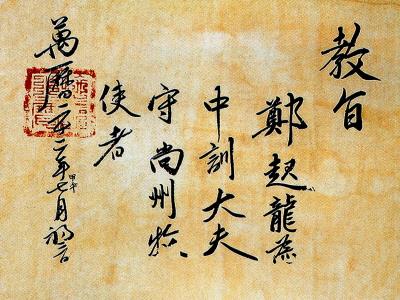 教旨
鄭起龍爲
中訓大夫
守尚州牧
使者
萬曆二十二年甲午七月初日